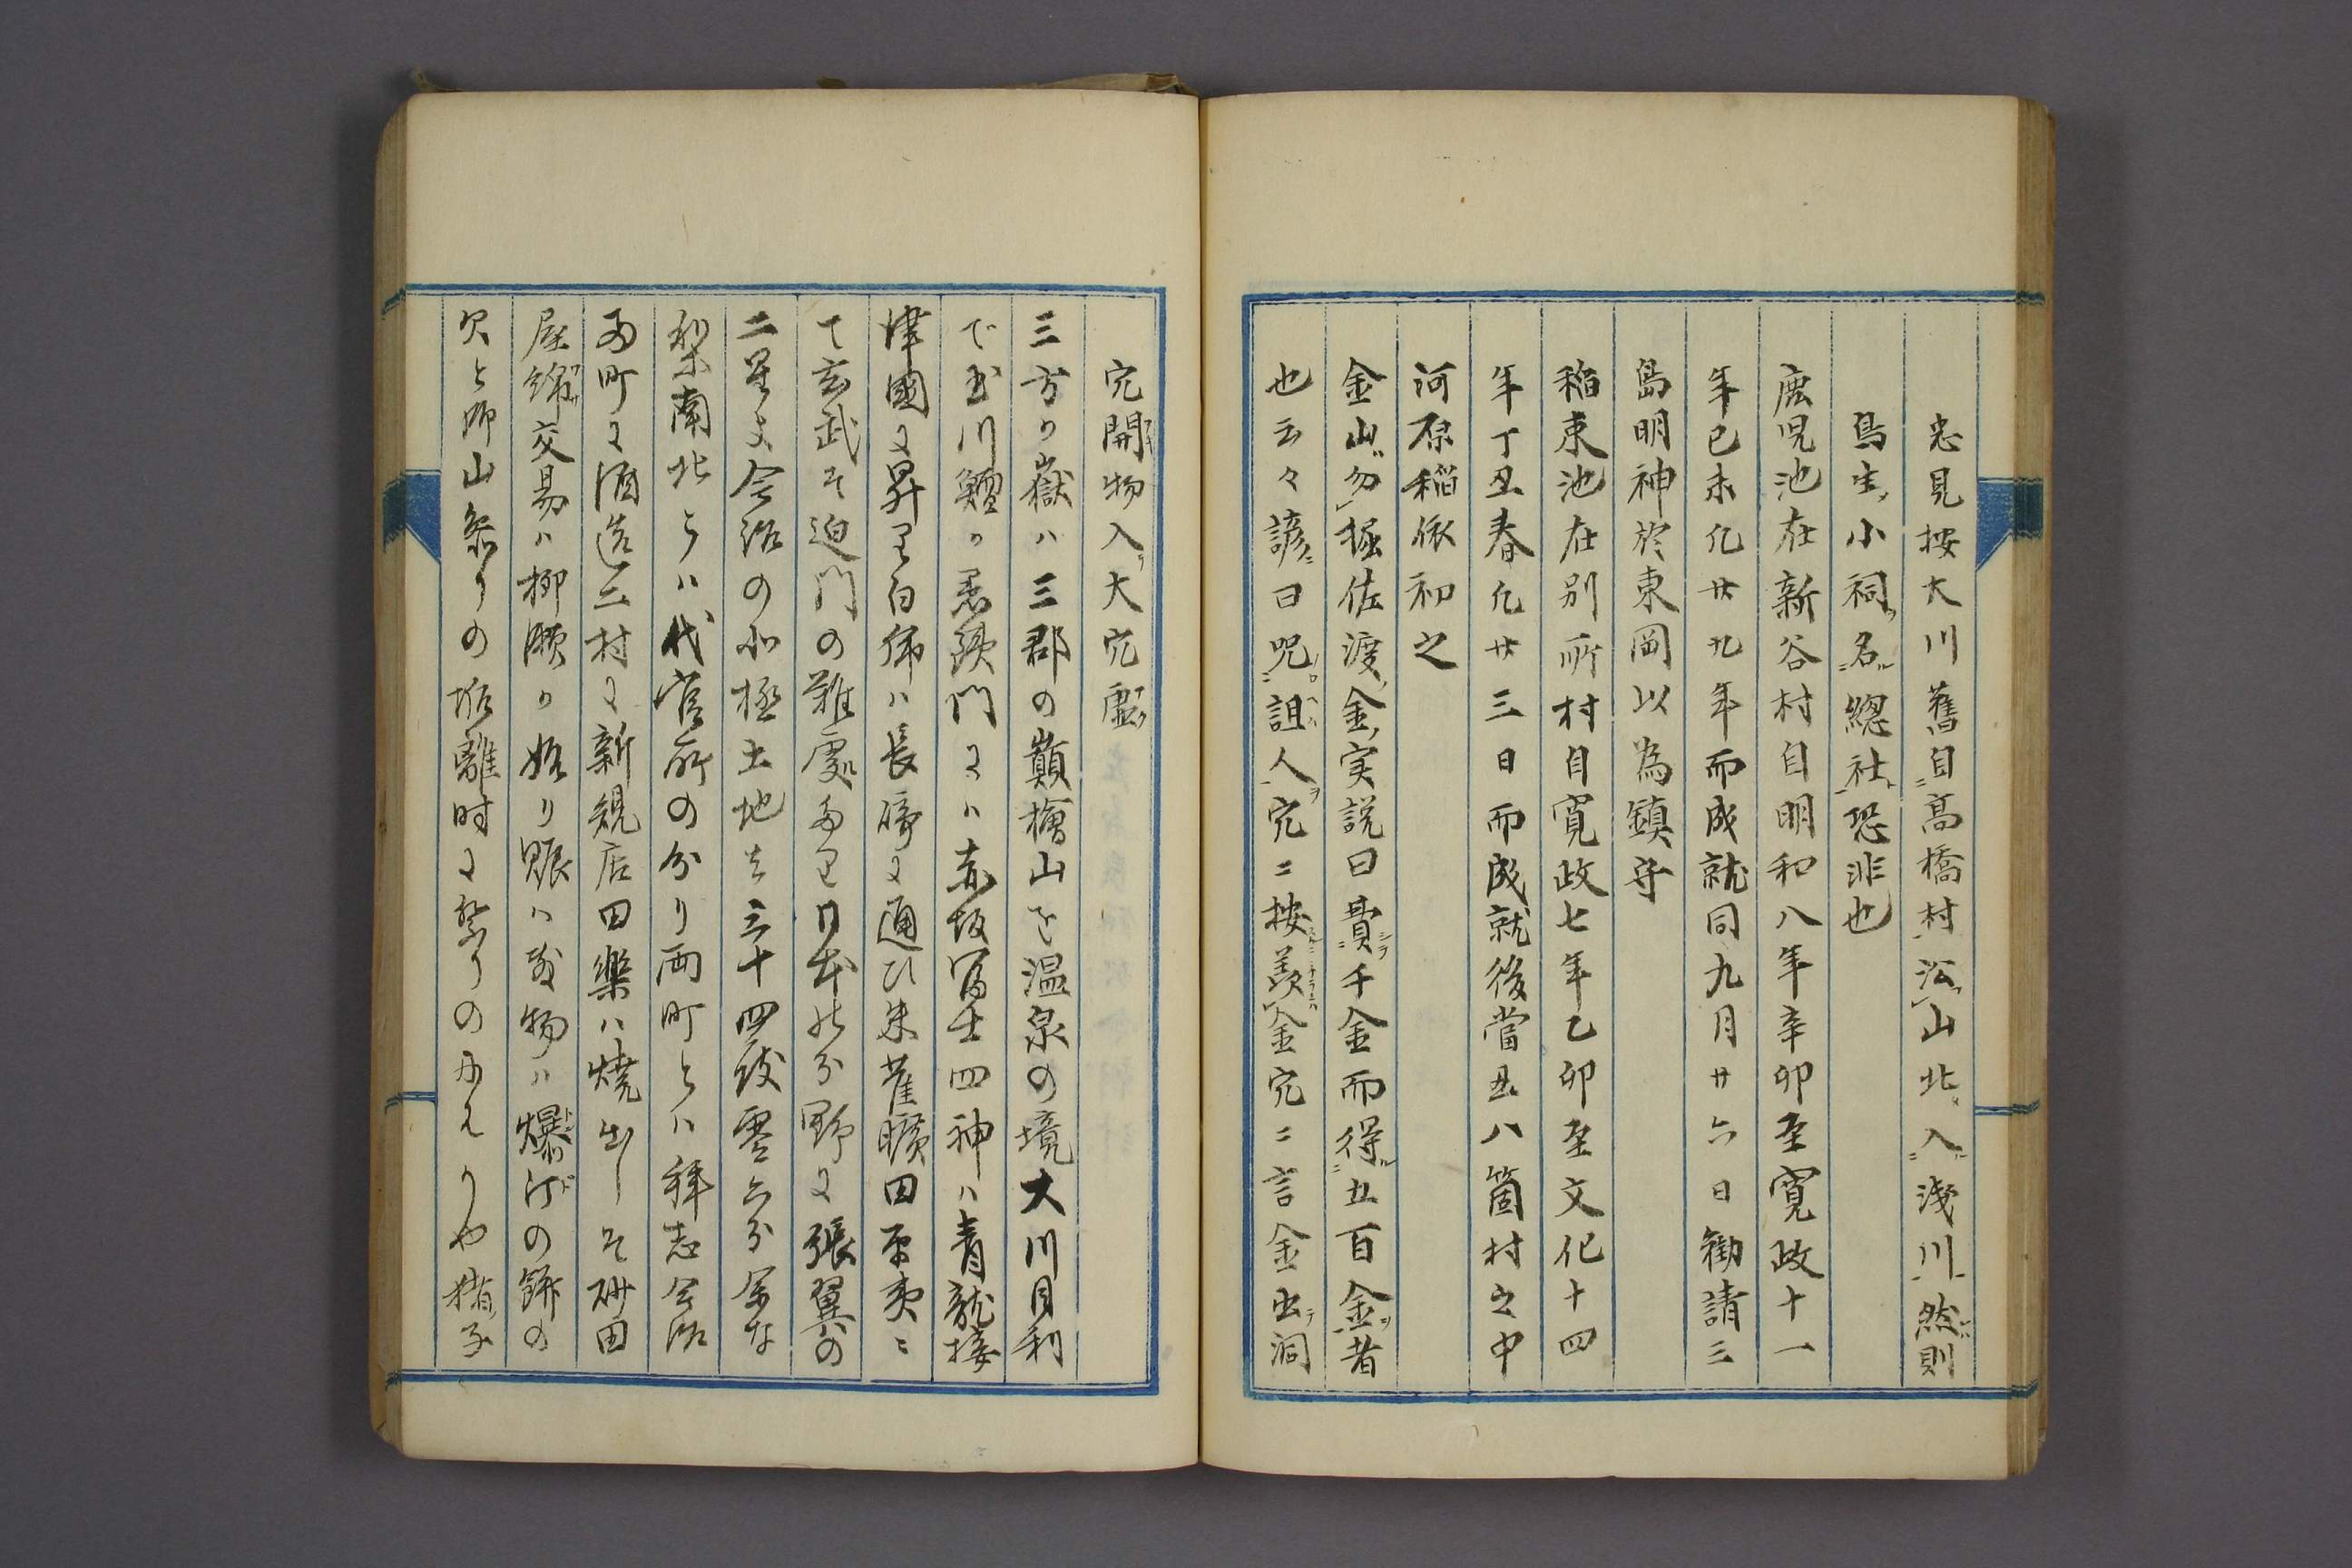 忠見按大川舊自高橋村沿山北入淺川然則
鳥生小祠名總社恐非也
鹿児池在新谷村自明和八年辛卯至寛政十一
年已未凡廿九年而成就同九月廿六日勧請三
島明神於東岡以為鎮守
稲束池在別所村自寛政七年乙卯至文化十四
年丁丑春凡廿三日而成就後當丑八箇村之中
河原稲依初之
金山勿掘佐渡金実説曰費千金而得五百金者
也云々諺曰呪詛人穴二按羨金穴二言金出洞
穴開物入大穴虚
三方の嶽ハ三郡の巓檜山を温泉の境大川目利
で玉川鱣の悪鐡門にハ赤坂冨士四神ハ青龍接
津國に昇り白虎ハ長崎に通ひ朱雀曠田平夷に
て玄武そ迫門の難處あり日本の分野に張翼の
二星又今治の北極土地は三十四度零六分余な
梨南北とハ代官所の分り両町とハ拝志今治
両町に酒造二村に新規店田樂ハ焼出しそ研田
屋綿交易ハ柳瀬の始り賑ハ敷物ハ爆汀の餅の
山祭りの 離時に祭りの